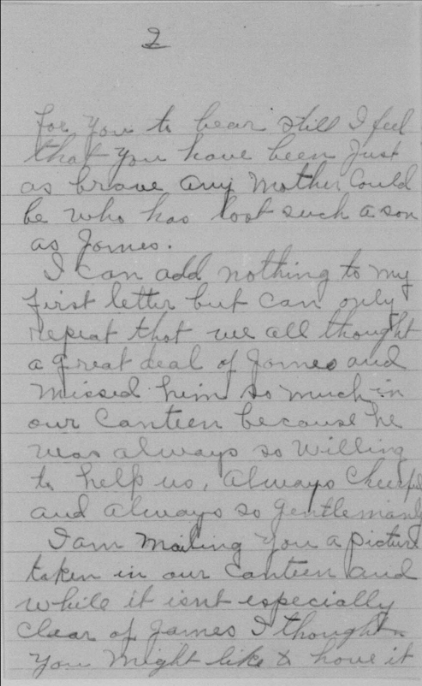 2
for you to bear still I feel
that you have been just
as brave any Mother Could
be who has lost such a son
as James.
I can add nothing to my
first letter but can only
repeat that we all thought
a great deal of James and
Missed him so much in
our Canteen because he
was always so willing
to help us, always Cheerful
and always so gentlemanly
I am Mailing you a picture
taken in our Canteen and
while it isnt especially
clear of James I thought
you Might like to have it